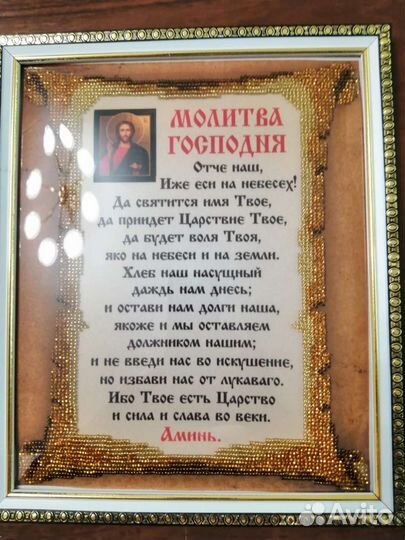 МОЛИТВА
ГОСПОДНЯ
Отче наш,
Иже еси на небесех!
Да святится имя Твое,
да приидет Царствие Твое,
да будет воля Твоя,
яко на небеси и на земли.
Хлеб наш насущный
даждь нам днесь;
и остави нам долги наша,
якоже и мы оставляем
должником нашим;
и не введи нас во искушение,
но избави нас от лукаваго.
Ибо Твое есть Царство
и сила и слава во веки.
Аминь.
Avito